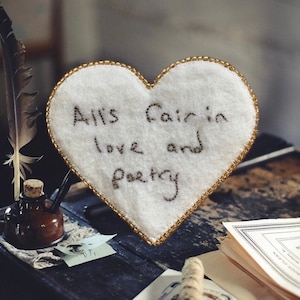 All's fair in
love and
poetry